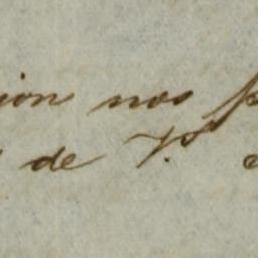 ion nos p
de V.